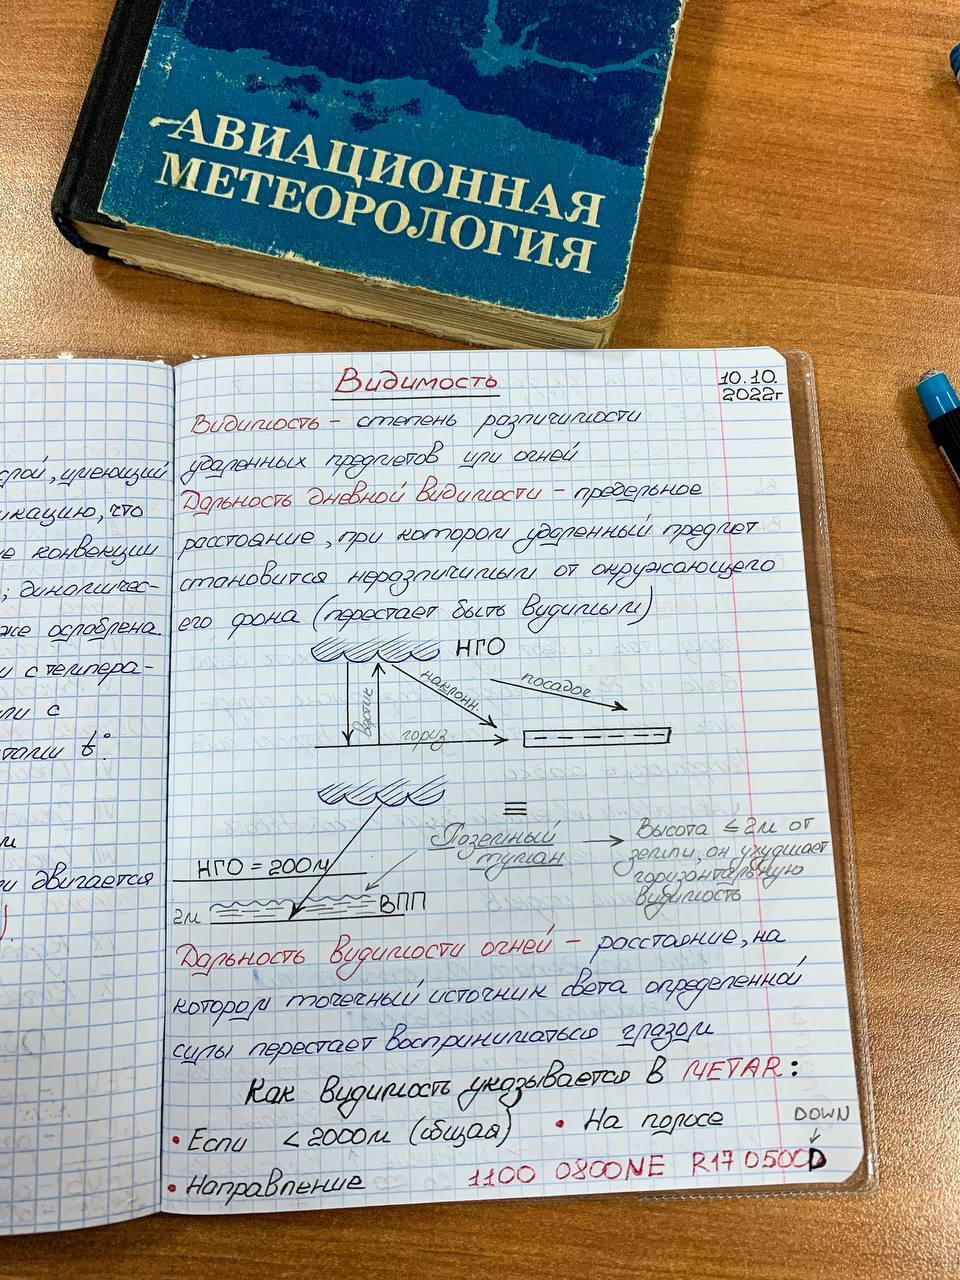 АВИАЦИОННАЯ
МЕТЕОРОЛОГИЯ
слой, имеющий
что
е конвекции
; динамичес-
же ослаблена.
и с темпера-
ли с
t°
двигается
Видимость
10.10.
2022г
Видимость – степень различимости
удаленных предметов или огней
Дальность дневной видимости – предельное
расстояние, при котором удаленный предмет
становится неразличимым от окружающего
его фона (перестает быть видимым)
НГО
вертик
наклонн.
посадоч
гориз
≡
Поземный
туман
Высота ≤ 2м от
земли, он ухудшает
горизонтальную
видимость
НГО = 200м
2м
ВПП
Дальность видимости огней – расстояние, на
котором точечный источник света определенной
силы перестает восприниматься глазом
Как видимость указывается в METAR:
• Если < 2000м (общая)
• На полосе
DOWN
• Направление
1100 0800NE R17 0500D